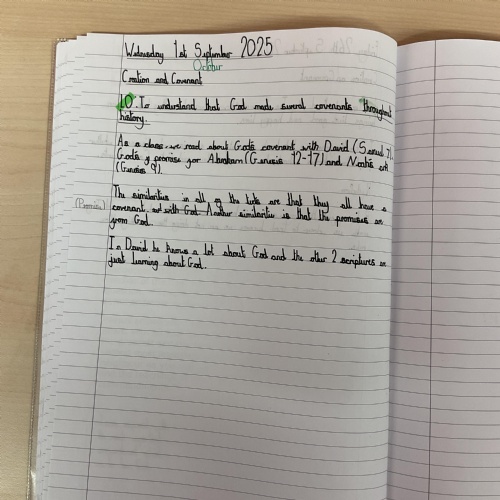 Wednesday 1st September 2025
October
Creation and Covenant
LO: To understand that God made several covenants throughout
history.
As a class, we read about God's covenant with David (Samuel 7),
God's promise for Abraham (Genesis 12-17) and Noah's ark
(Genesis 9).
The similarities in all of the links are that they all have a
(Promise) covenant with God. Another similarities is that the promises are
from God.
In David he knows a lot about God and the other 2 scriptures are
just learning about God.